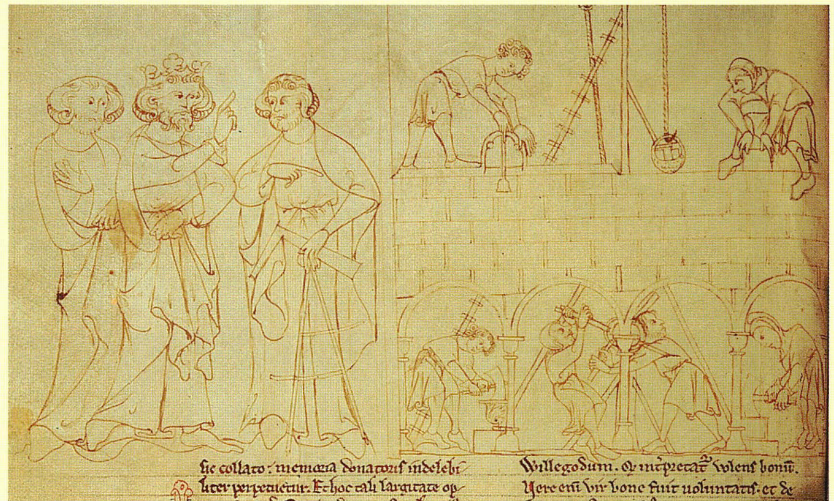 sic collato: memoria donatoris indelebi
liter perpetuetur. Et hoc tali largitate op
Willegodum. Qď int̾pretat᷑ volens bonū.
Vere eni vir bone fuit voluntatis: et de